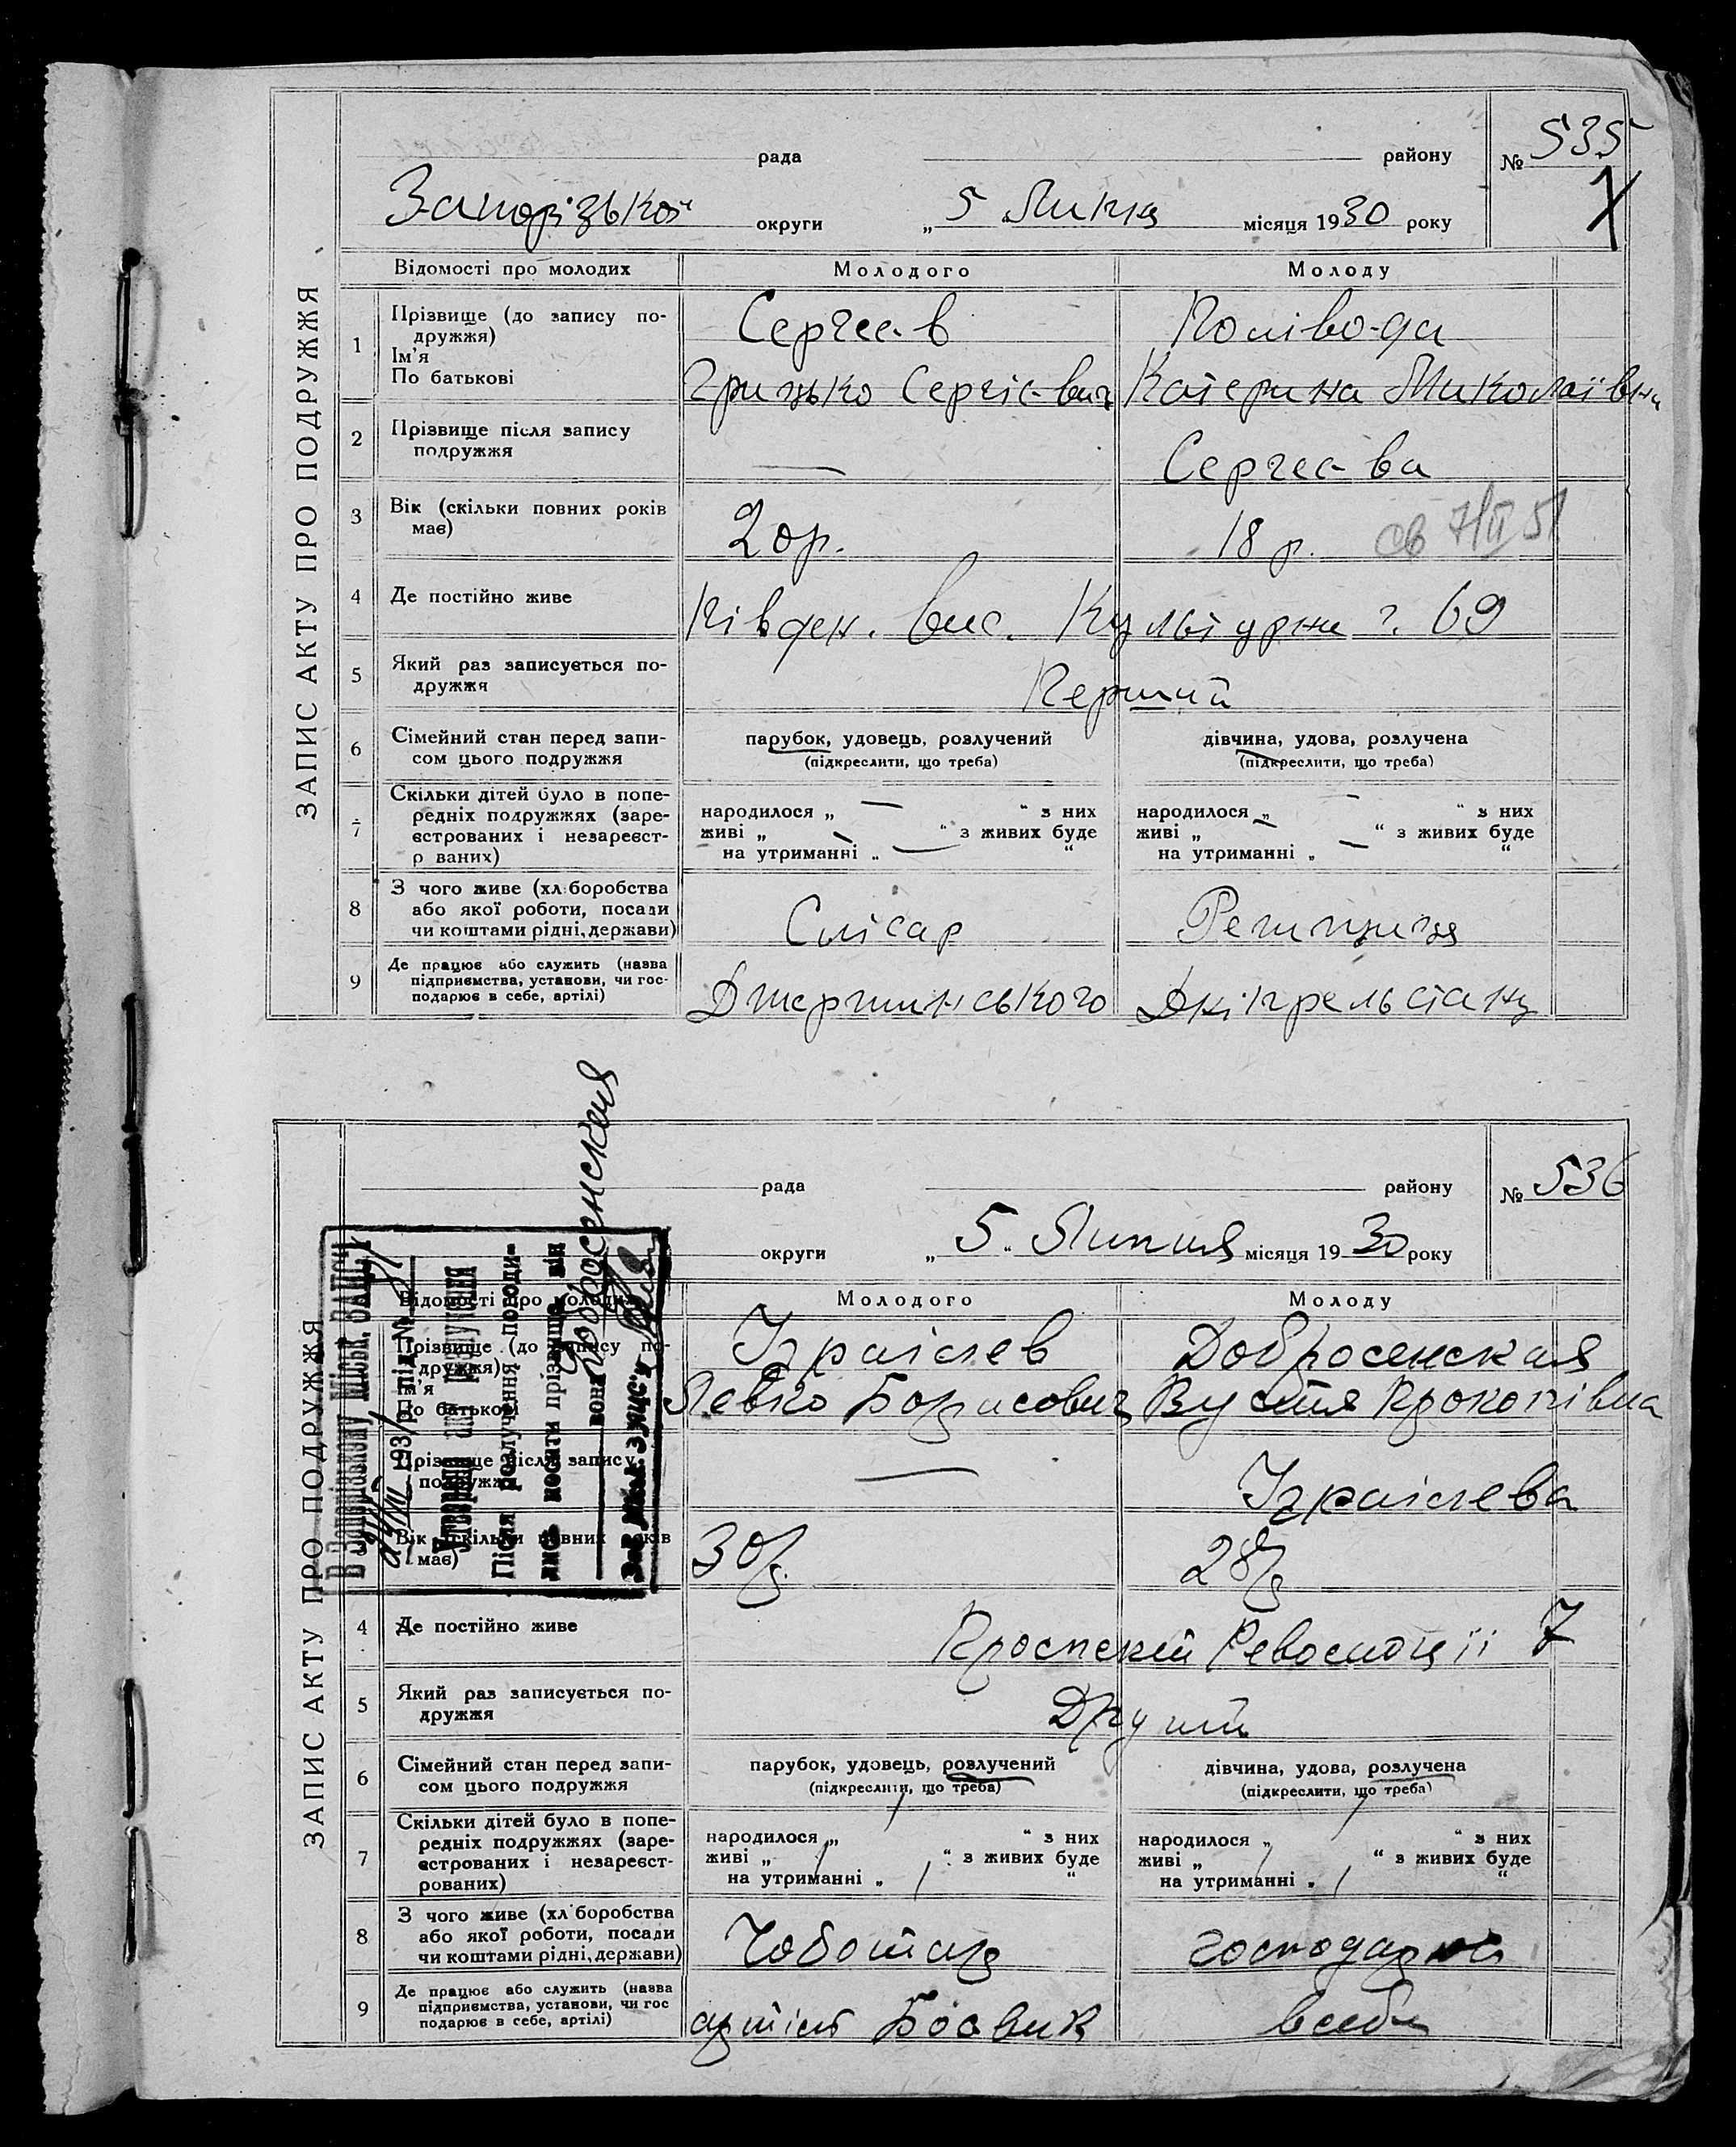 ЗАПИС АКТУ ПРО ПОДРУЖЖЯ
рада району № 535
Запорізької округи „ 5 Липня місяця 1930 року
Відомості про молодих Молодого Молоду
1 Прізвище (до запису по-
дружжя)
Ім'я
По батькові
Сергеєв
Грицько Сергієвич
Коливода
Катерина Миколаївна
2 Прізвище після запису
подружжя
— Сергеєва
3 Вік (скільки повних років
має)
20 р. 18 р. св 7/II 51
4 Де постійно живе
Півден. вис. Культурна 69
5 Який раз записується по-
дружжя
Перший
6 Сімейний стан перед запи-
сом цього подружжя
парубок, удовець, розлучений
(підкреслити, що треба)
дівчина, удова, розлучена
(підкреслити, що треба)
7 Скільки дітей було в попе-
редніх подружжях (заре-
єстрованих і незареєст-
р ваних)
народилося „ — “ з них
живі „ — “ з живих буде
на утриманні „ — “
народилося „ — “ з них
живі „ — “ з живих буде
на утриманні „ — “
8 З чого живе (хл боробства
або якої роботи, посади
чи коштами рідні, держави)
Слісар
9 Де працює або служить (назва
підприємства, установи, чи гос-
подарює в себе, артілі)
Джержинського Дніпрельстану
ЗАПИС АКТУ ПРО ПОДРУЖЖЯ
рада району № 536
округи „ 5 “ Липня місяця 1930 року
Відомості про молодих Молодого Молоду
Прізвище (до запису по-
дружжя)
Ім'я
По батькові
Ізраілев
Левко Борисович
Добросенская
Вустя Прокопівна
Прізвище після запису
подружжя
— Ізраілева
Вік (скільки повних років
має)
30 р. 28 р
4 Де постійно живе
Проспект Революції 7
5 Який раз записується по-
дружжя
Другий
6 Сімейний стан перед запи-
сом цього подружжя
парубок, удовець, розлучений
(підкреслити, що треба)
дівчина, удова, розлучена
(підкреслити, що треба)
7 Скільки дітей було в попе-
редніх подружжях (заре-
єстрованих і незареєст-
рованих)
народилося „ “ з них
живі „ “ з живих буде
на утриманні „ “
народилося „ “ з них
живі „ “ з живих буде
на утриманні „ “
8 З чого живе (хл боробства
або якої роботи, посади
чи коштами рідні, держави)
Чоботар господарка
9 Де працює або служить (назва
підприємства, установи, чи гос
подарює в себе, артілі)
артіль
В Запорізькому міськ. ЗАПСі
193 р. під №
Утворено акт розлучення
Після розлучення погоди-
лись носити прізвище він
вона Добросенская
Зав. міськ. ЗАПС'у